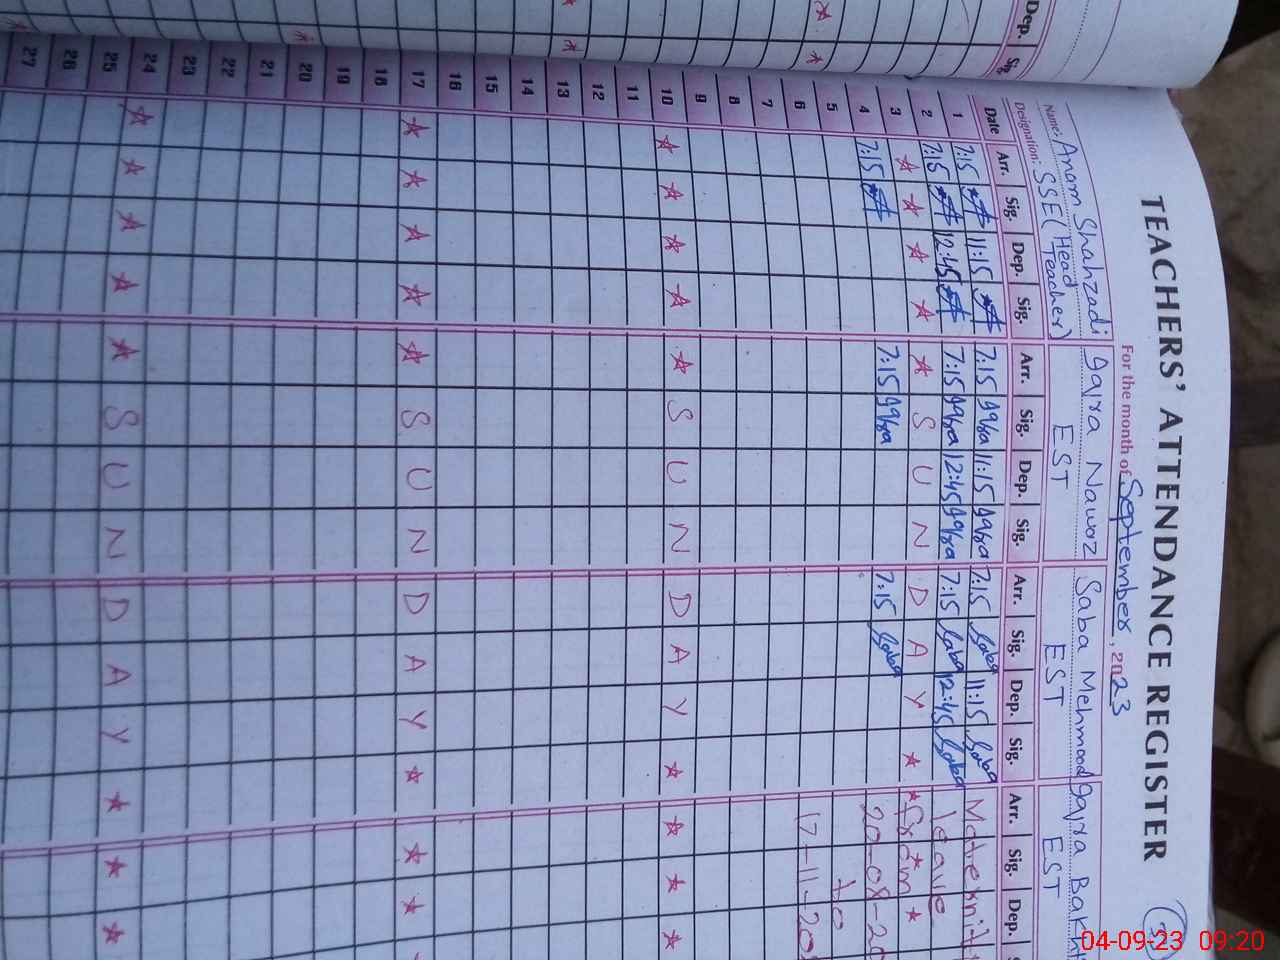 Dep. Sig.
TEACHERS' ATTENDANCE REGISTER
For the month of September, 2023
Name: Anam Shahzadi Iqra Nawaz Saba Mehmood Iqra Bakh
Designation: SSE (Head Teacher) EST EST EST
Date Arr. Sig. Dep. Sig. Arr. Sig. Dep. Sig. Arr. Sig. Dep. Sig. Arr. Sig. Dep.
1 7:15 11:15 7:15 Iqra 11:15 Iqra 7:15 Saba 11:15 Saba
2 7:15 12:45 7:15 Iqra 12:45 Iqra 7:15 Saba 12:45 Saba leave
3 SUNDAY from
4 7:15 7:15 Iqra 7:15 Saba 20-08-20
5 to
6 17-11-20
7
8
9
10 SUNDAY
11
12
13
14
15
16
17 SUNDAY
18
19
20
21
22
23
24 SUNDAY
25
26
27
04-09-23 09:20